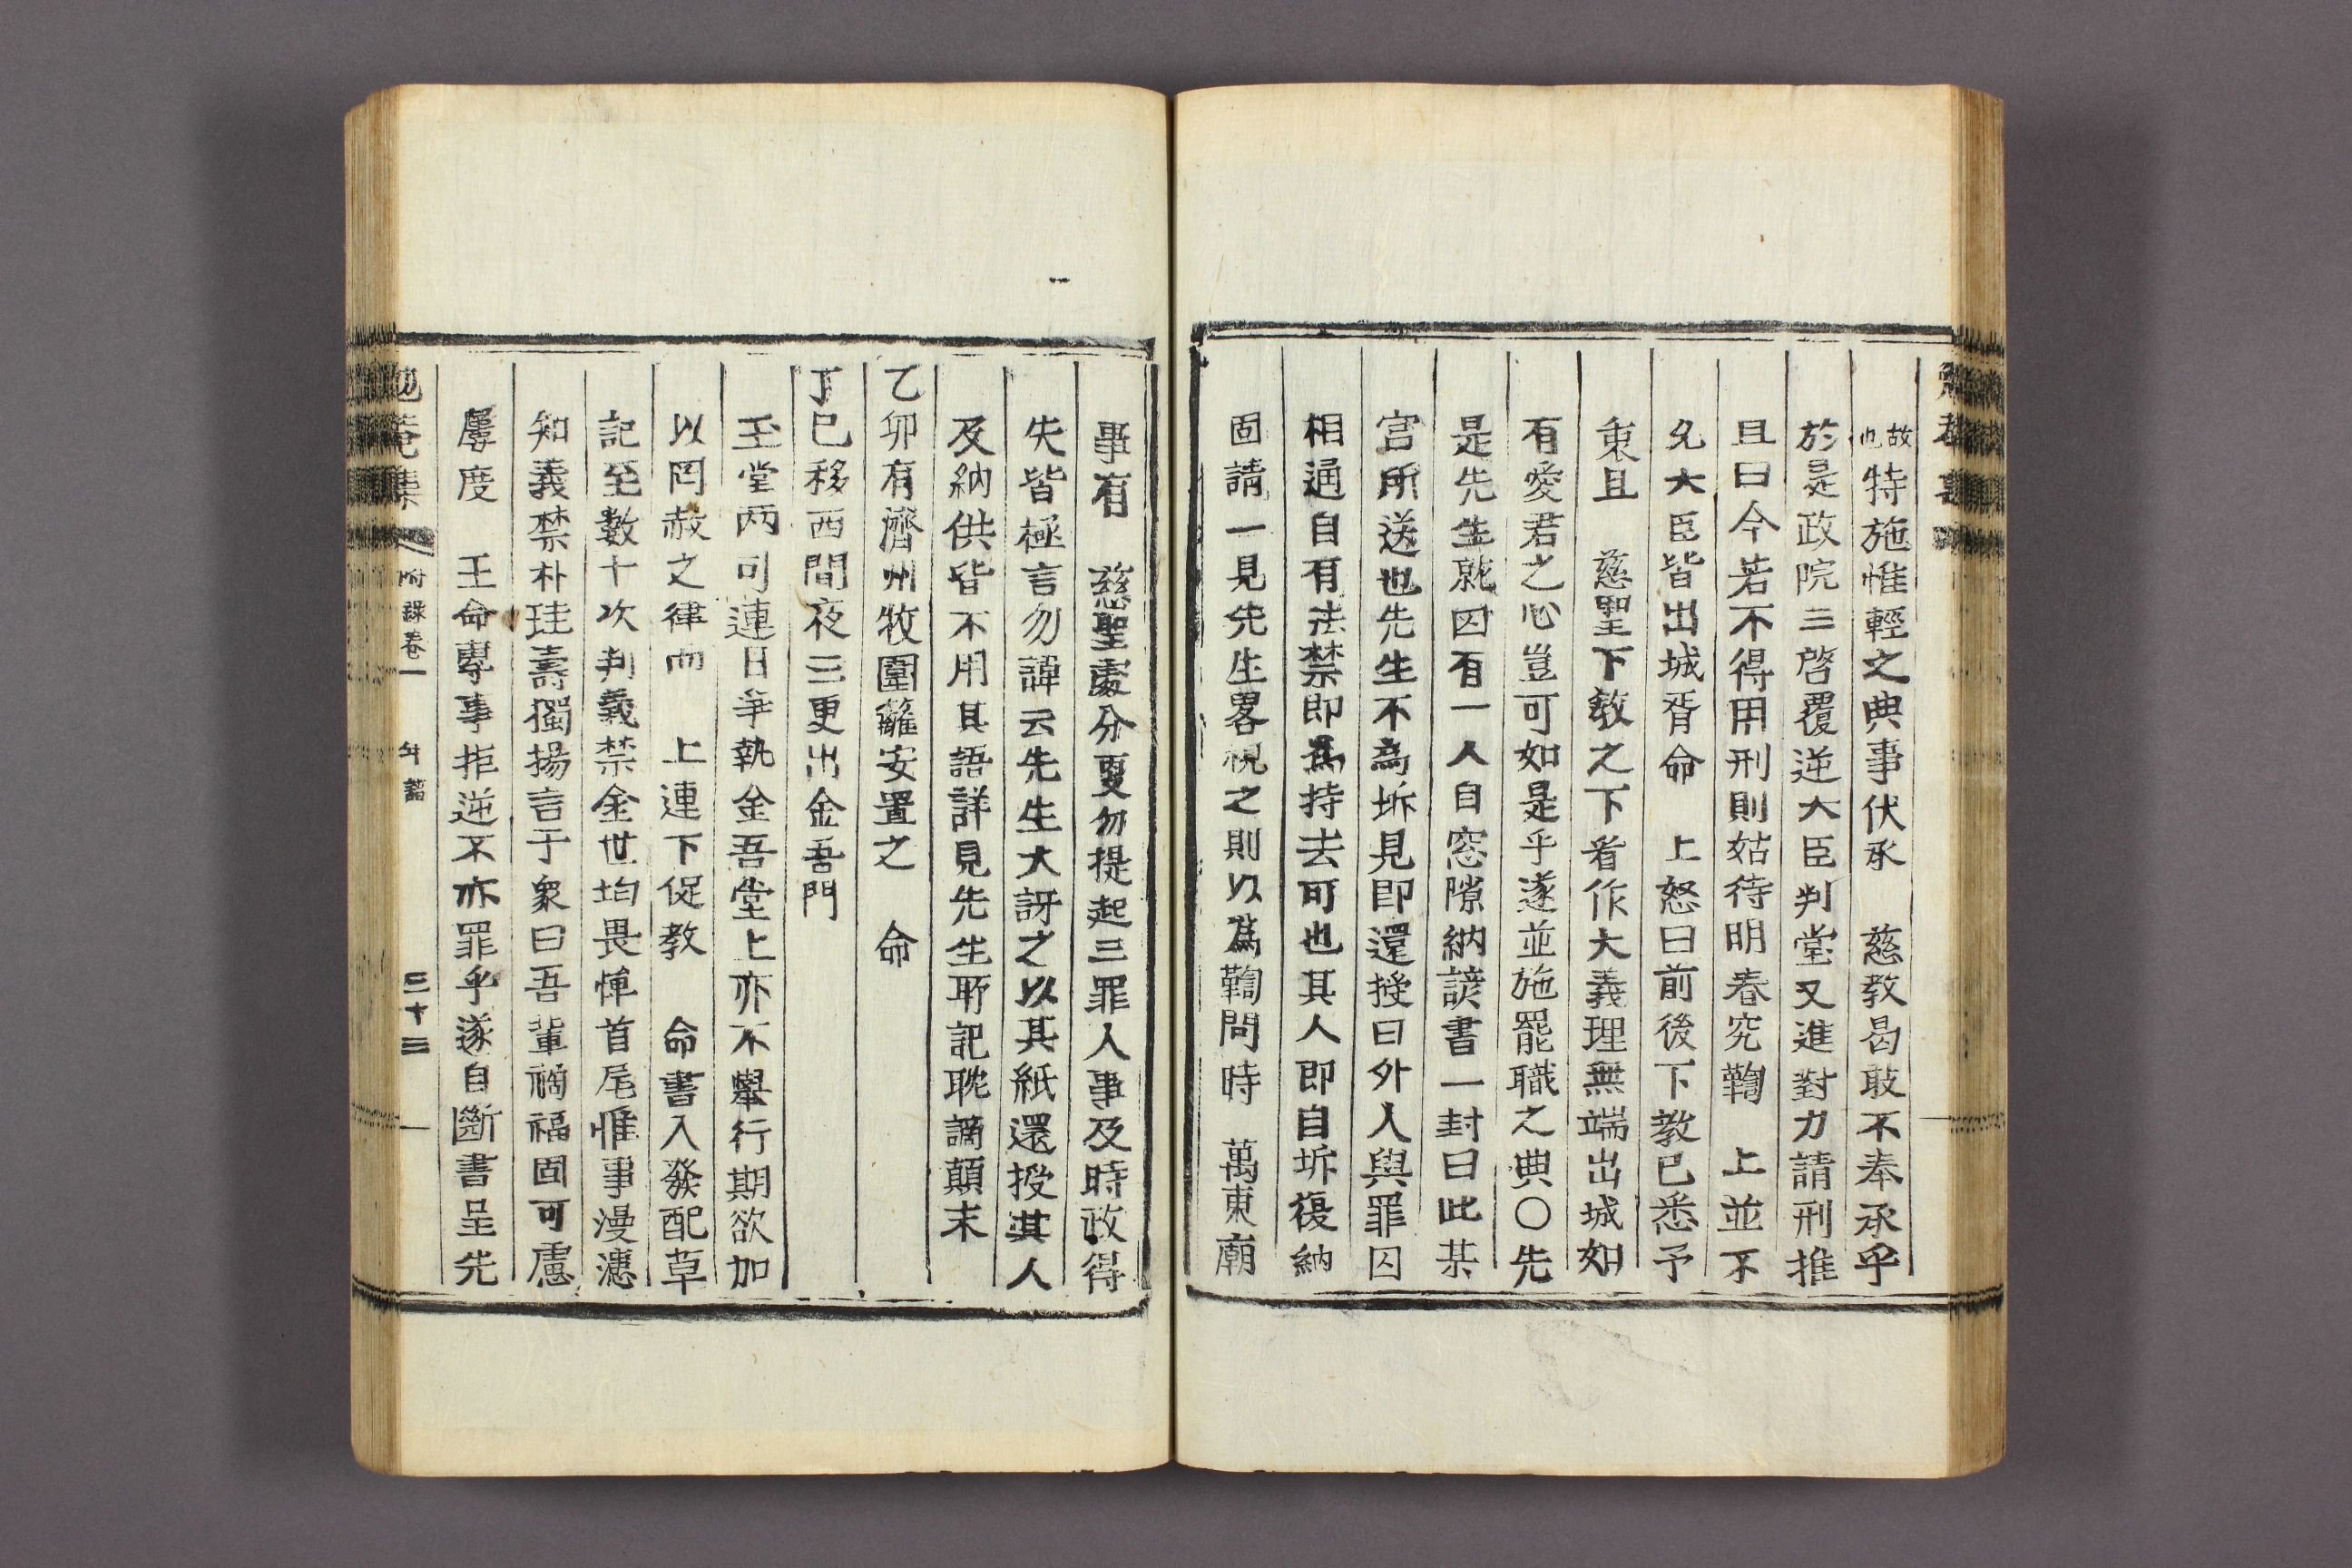 故也特施惟輕之典事伏承 慈教曷敢不奉承乎
於是政院三啓覆逆大臣判堂又進對力請刑推
且曰今若不得用刑則姑待明春究鞫 上並不
允大臣皆出城胥命 上怒曰前後下教已悉予
衷且 慈聖下教之下看作大義理無端出城如
有愛君之心豈可如是乎遂並施罷職之典〇先
是先生就囚有一人自窓隙納諺書一封曰此某
宮所送也先生不爲坼見即還授曰外人與罪囚
相通自有法禁即爲持去可也其人即自坼復納
固請一見先生畧視之則以爲鞫問時 萬東廟
事有 慈聖處分更勿提起三罪人事及時政得
失皆極言勿諱云先生大訝之以其紙還授其人
及納供皆不用其語詳見先生所記耽謫顚末
乙卯有濟州牧圍籬安置之 命
丁巳移西間夜三更出金吾門
玉堂两司連日爭執金吾堂上亦不擧行期欲加
以罔赦之律而 上連下促教 命書入發配草
記至數十次判義禁金世均畏憚首尾惟事漫漶
知義禁朴珪壽獨揚言于衆曰吾輩禍福固可慮
屢度 王命專事拒逆不亦罪乎遂自斷書呈先
勉菴集 附錄卷一 年譜 三十三